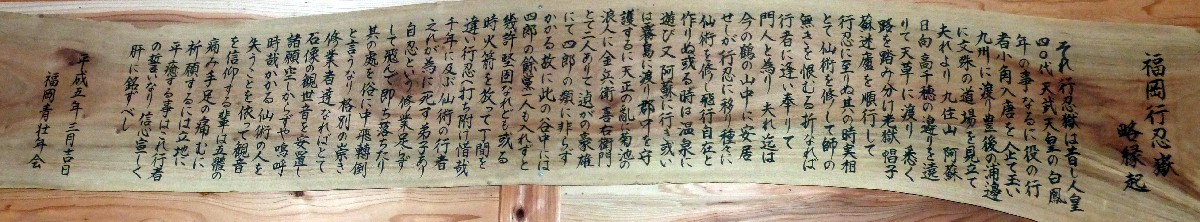 福岡行忍嶽
略縁起
それ行忍嶽は昔し人皇
四〇代 天武天皇の白鳳
年の事なるに役の行
者小角入唐と企て玉い
九州に渡り豊後の浦邊
に文珠の道場を見立て
夫れより九住山 阿蘇
日向 高千穂の邊りを遶
りて天草に渡り 悉く
路を踏み分け老獄 唱子
蘇迷盧を順行して
行忍に至りぬ其の時実相
とて仙術を修して師の
無きを恨むる折なれば
行者に逢い奉りて
門人と為り 夫れ迄は
今の鶴の山中に安居
せしが行忍に移り種々に
仙術を修し飛行自在と
作りぬ或る時は温泉に
遊び又阿蘇に行き或い
は霧島に渡り郡中を守
護するに天正の乱に菊池の
浪人に金兵衛 市喜右衛門
とて二人ありて 適がの象雄
にて四郎の類に非らず
かかる故に此の谷中には
四郎の餘黨一人も入れずと
幾許 堅固なれど 或る
時 火箭を放って丁間を
違へ行忍へ打ち附け惜哉
千年に及ぶ仙術の行者
之れが為に死す弟子あり
自忍という修業未足ず
して飛んで即ち落ちたり
其の處を俗に中飛轉倒
と言うなり 格別の崇き
修業者達なればとて
石像の観世音を安置し
諸願空しからずや 嗚呼
時哉かかる仙術の人を
失うことを依って観音
を信仰する輩は五體の
痛み手足の痛むに
祈り願するには立地に
平癒する事は これ行者
の誓いなり 信心宜しく
肝に銘すべし
平成五年三月吉日
福岡青壮年会